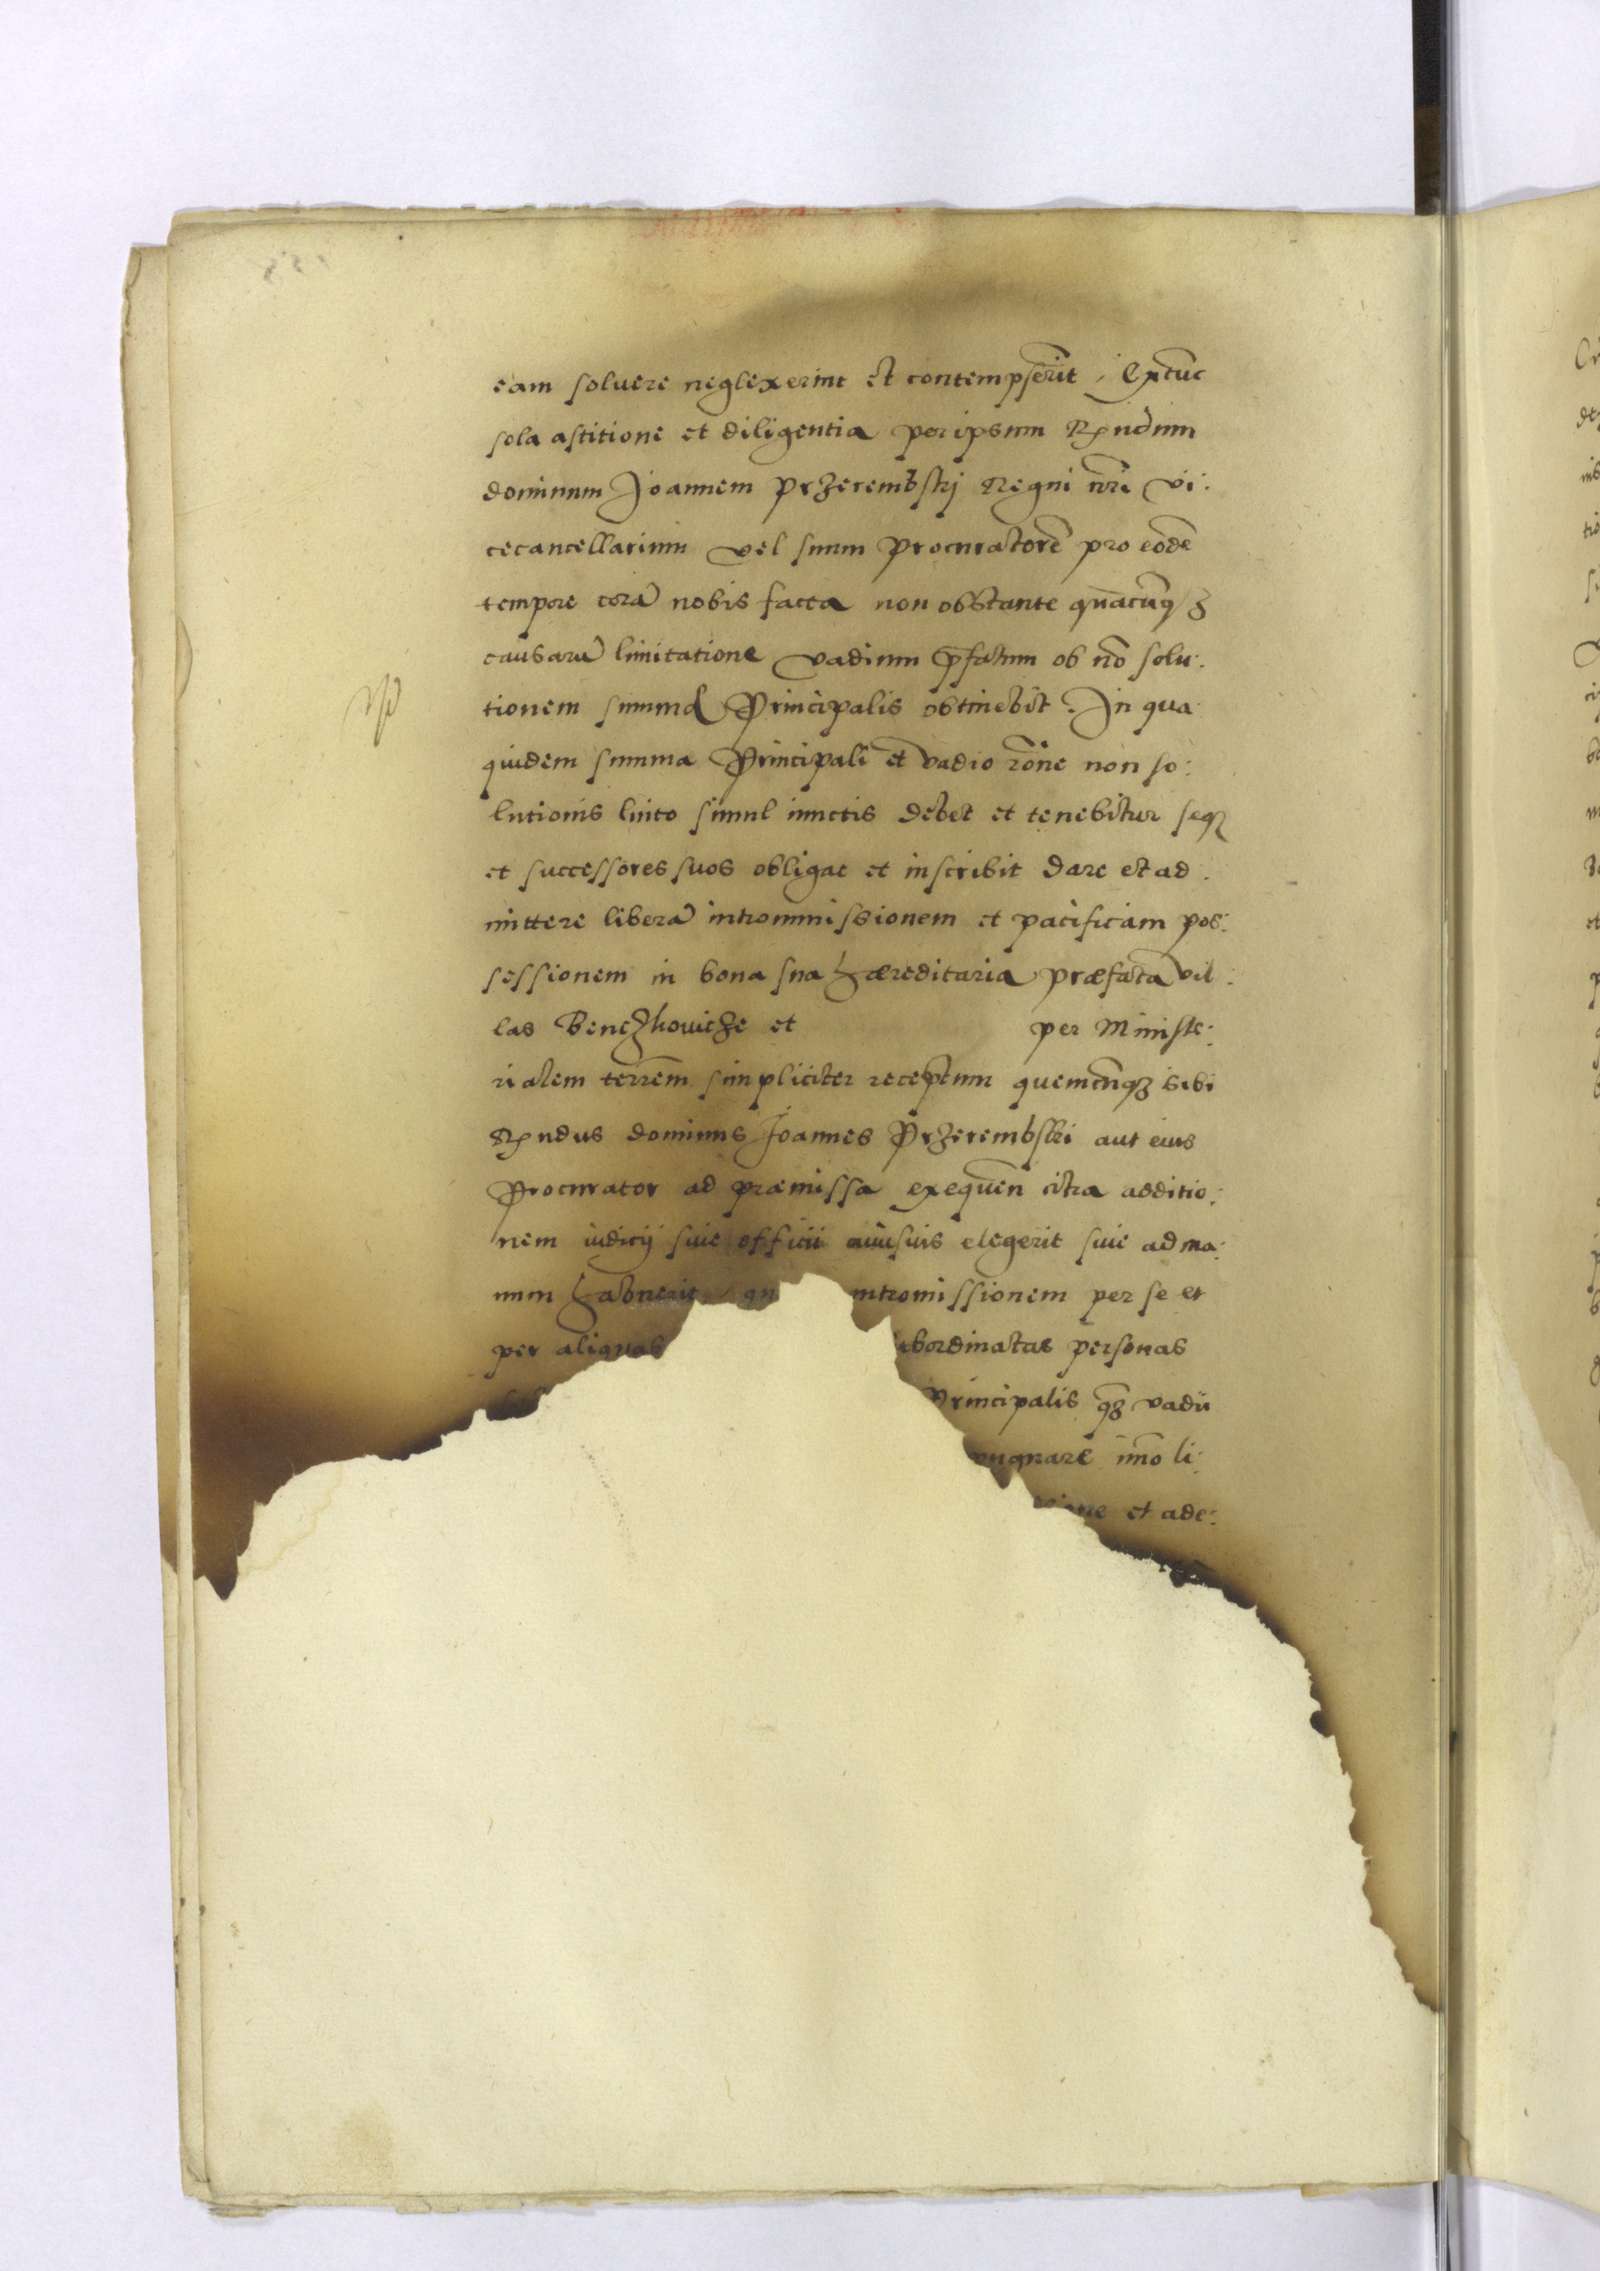 eam soluere neglexerint et contempserit, Extunc
sola astitione et diligentia per ipsum Rndum
dominum Joannem Przerembskj Regni nri vi:
cecancellarium vel suum procuratorē pro eodē
tempore corā nobis facta non obstante quacūqȝ
causarū limitatione vadium pfatum ob nō solu:
tionem summæ Principalis obtinebit. In qua
quidem summa Principali et vadio rōne non so:
lutionis luito simul iunctis debet et tenebitur seqȝ
et successores suos obligat et inscribit dare et ad:
mittere liberā intromissionem et pacificam pos:
sessionem in bona sua hæreditaria præfata vil:
las Benczkowicze et per Ministe:
rialem terrem simpliciter receptum quemcunqȝ sibi
Rndus dominus Joannes Przerembski aut eius
Procurator ad præmissa exequen citra additio:
nem iudicij siue officii cuiusuis elegerit siue ad ma:
num habuerit, qu intromissionem per se et
per aliquas subordinatas personas
Principalis qȝ vadii
pugnare imo li:
et ade: